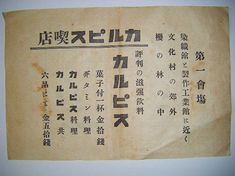 カルピス喫店
第一會場
染織館と製作工業館に近く
文化村の郊外
櫻の林の中
評判の滋强飮料
カルピス
菓子付一杯金拾錢
ギタミン料理
カルピス料理
カルピス共
六品にて金五拾錢